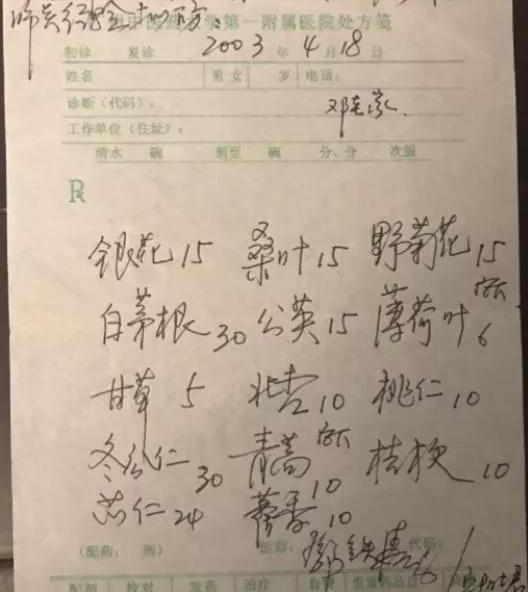 学第一附属医院处方笺
初诊 复诊 2003 年 4 月 18 日
姓名 男 女 岁 电话:
诊断(代码):
工作单位(住址): 邓老家
清水 碗 煎至 碗 分、分 次服
R
银花 15 桑叶 15 野菊花 15
白茅根 30 公英 15 薄荷叶 后下 6
甘草 5 北杏 10 桃仁 10
冬瓜仁 30 青蒿 后下 10 桔梗 10
苡仁 24 藿香 10
(配药: 剂) 医师: 邓铁涛 代码:
配剂 核对 发药 治疗 自费 贵重药品自